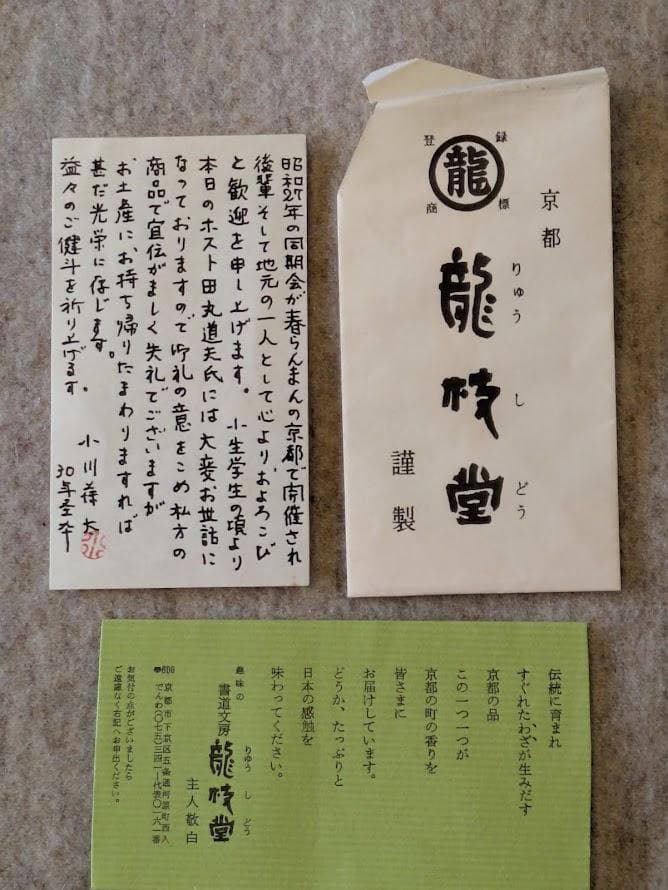 昭和27年の同期会が春らんまんの京都で開催され
後輩そして地元の一人として心よりおよろこび
と歓迎を申し上げます。 小生学生の頃より
本日のホスト田丸道夫氏には大変お世話に
なっておりますので御礼の意をこめ私方の
商品で宣伝がましく失礼でございますが
お土産に、お持ち帰りたまわりますれば
甚だ光栄に存じます。
益々のご健斗を祈り上げます。
小川
30年
登録商標
龍
京都
りゅうしどう
龍枝堂
謹製
伝統に育まれ
すぐれたわざが生みだす
京都の品
この一つ一つが
京都の町の香りを
皆さまに
お届けしています。
どうか、たっぷりと
日本の感触を
味わってください。
趣味の
書道文房 龍枝堂
りゅうしどう
主人敬白
〒600 京都市下京区五条通河原町西入
でんわ(〇七五)三四一-代表〇一六一番
お気付の点がございましたら
ご遠慮なく右記へお申出ください。